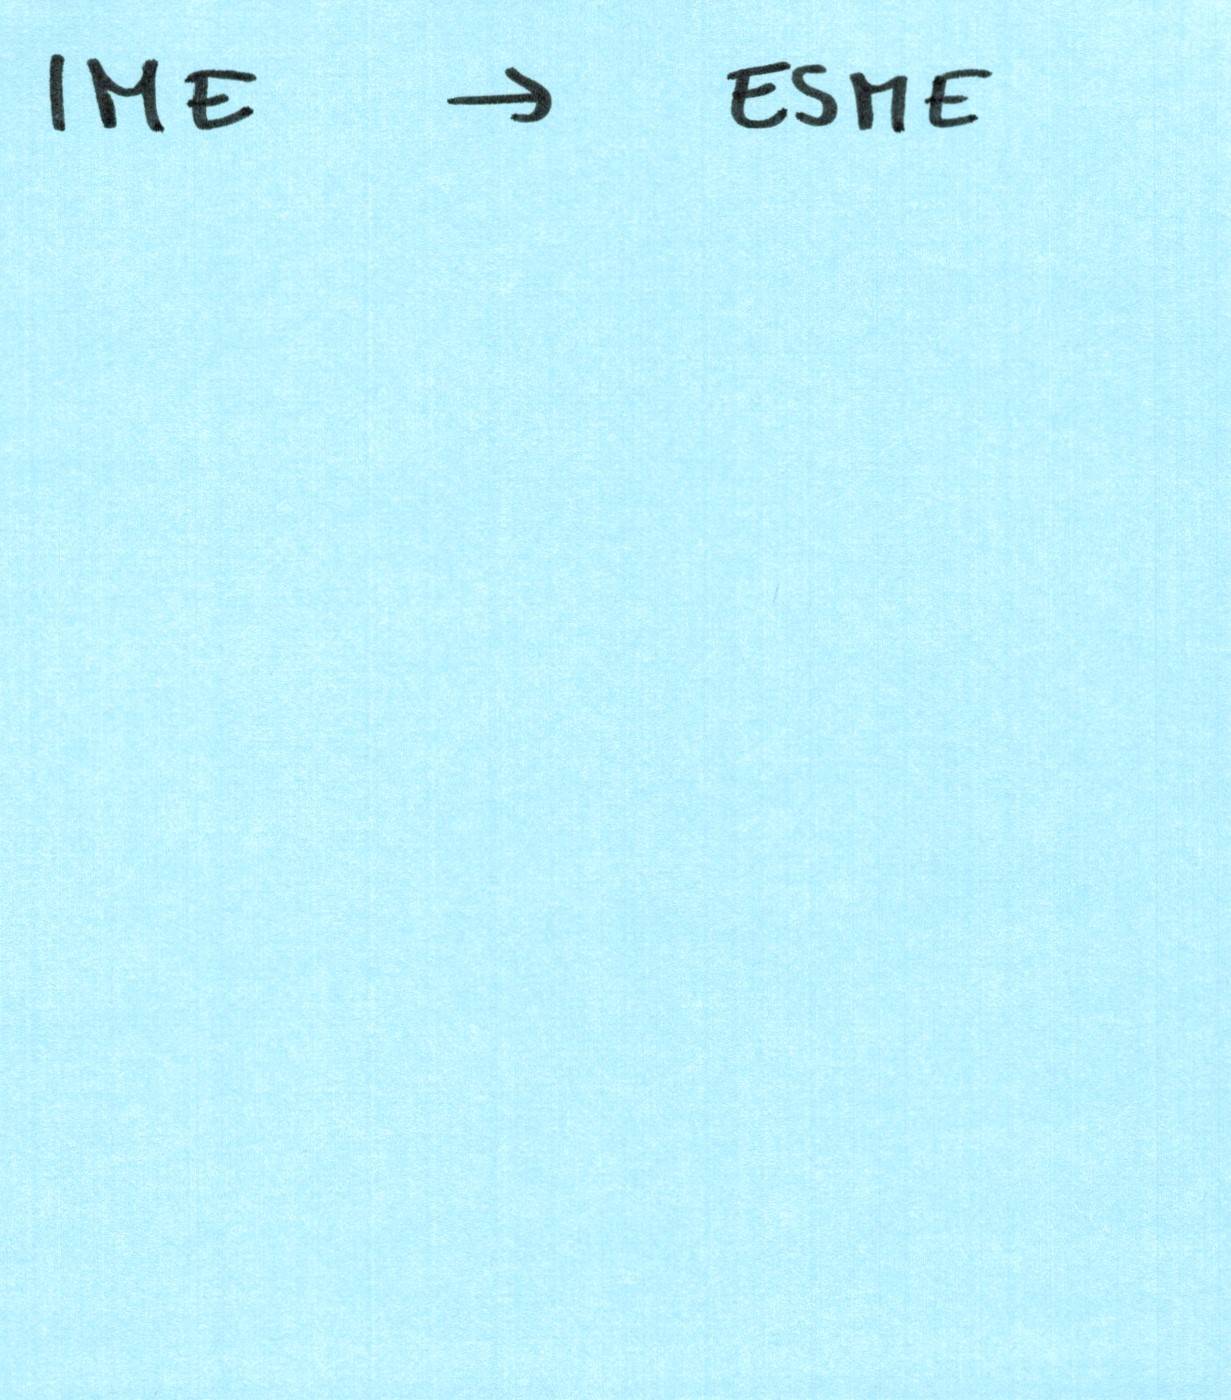 IME → ESME